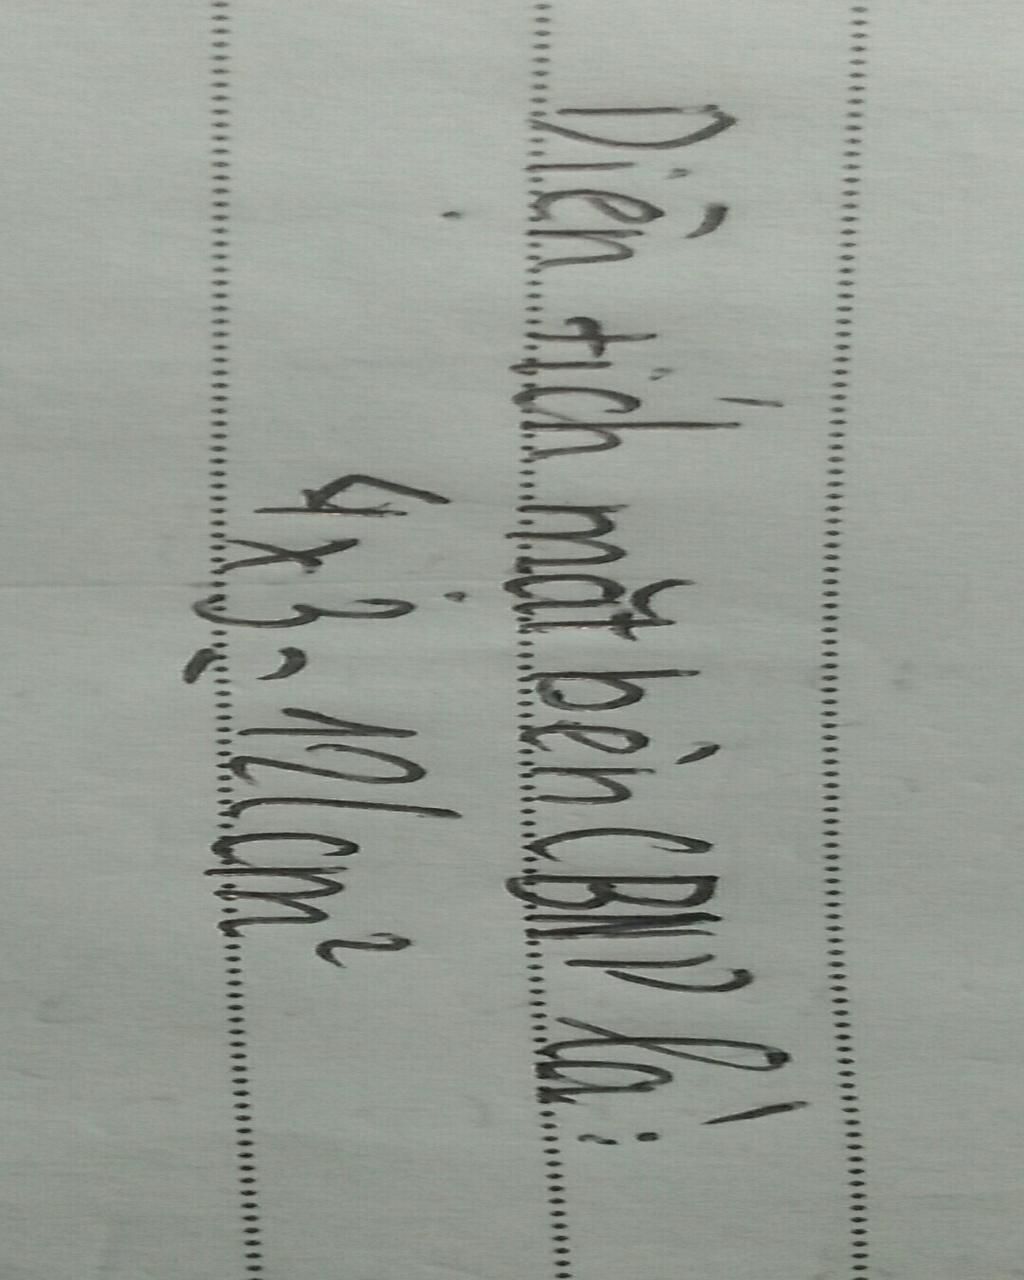 Diện tích mặt bên CBND là:
4 x 3 = 12 (cm²